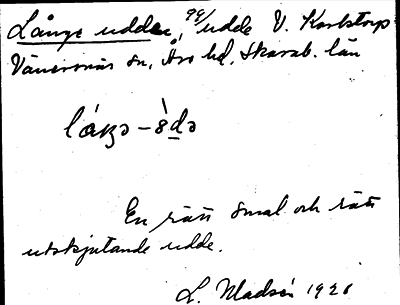 Långe udden, 99/ udde V. Karlstorp
Vänersnäs sn, Åse hd, Skarab. län
láŋə-ə̀də
En rätt smal och rätt
utskjutande udde.
L. Madsén 1926